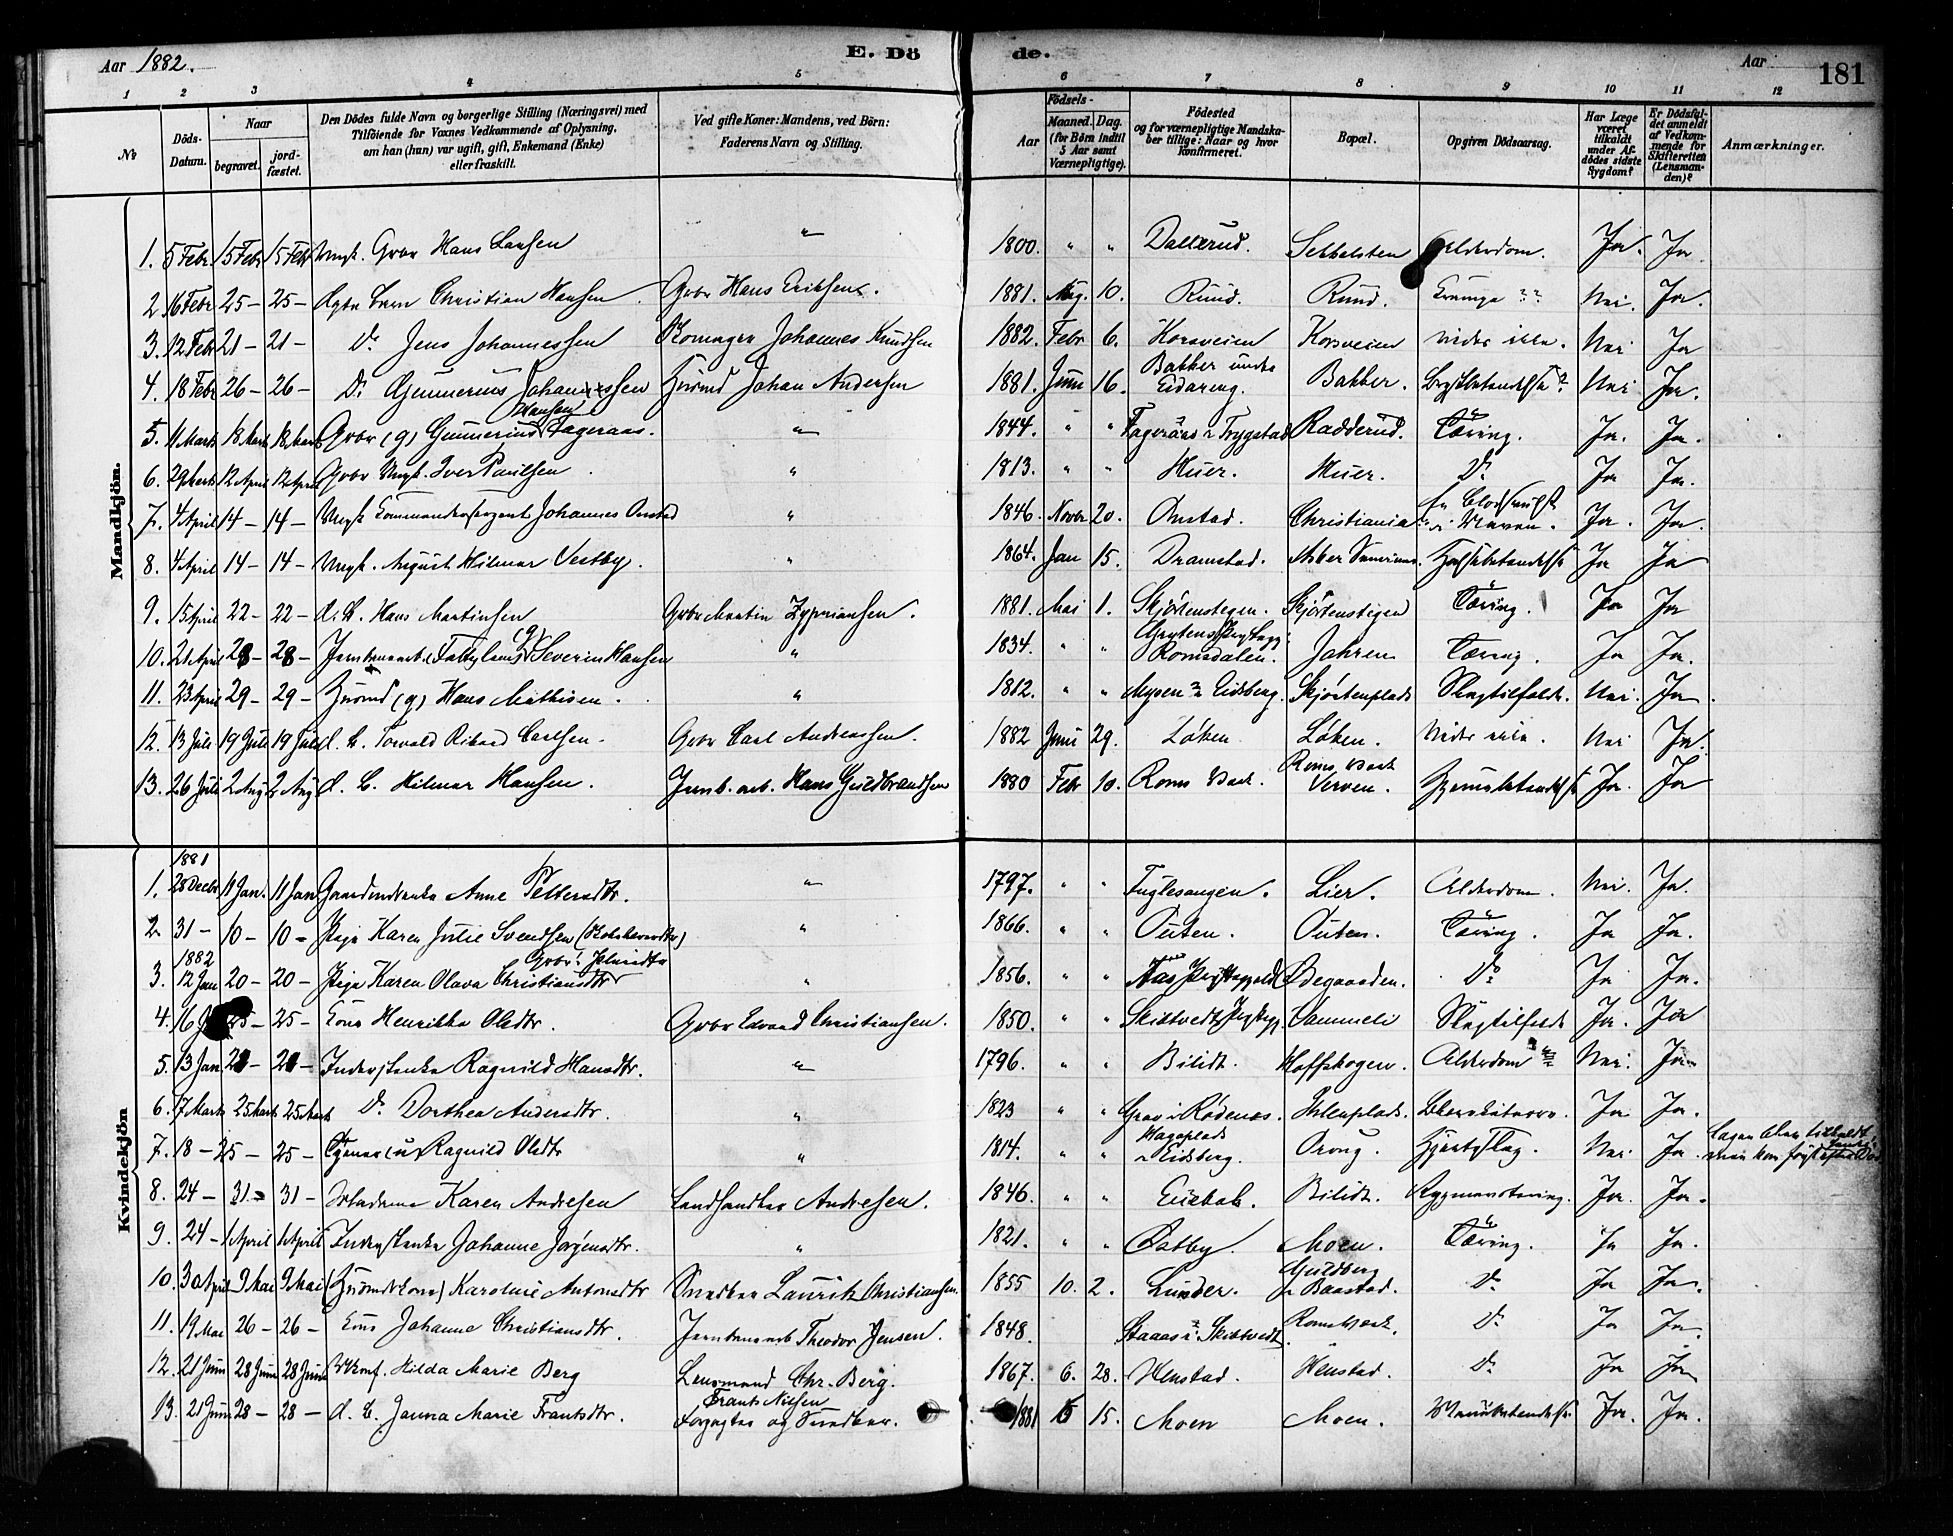 Aar 1882.
E. Dö
de.
Aar
181
1 2 3 4 5 6 7 8 9 10 11 12
No
Döds-Datum.
Naar
begravet.
jord-fæstet.
Den Dödes fulde Navn og borgerlige Stilling (Næringsvei) med
Tilföiende for Voxnes Vedkommende af Oplysning,
om han (hun) var ugift, gift, Enkemand (Enke)
eller fraskilt.
Ved gifte Koner: Mandens, ved Börn:
Faderens Navn og Stilling.
Födsels-
Aar
Maaned. Dag.
(for Börn indtil
5 Aar samt
Værnepligtige).
Födested
og for værnepligtige Mandska-
ber tillige: Naar og hvor
konfirmeret.
Bopæl.
Opgiven Dödsaarsag.
Har Læge
været
tilkaldt
under Af-
dödes sidste
Sygdom?
Er Dödsfal-
det anmeldt
af Vedkom-
mende for
Skifteretten
(Lensman-
den)?
Anmærkninger.
Mandkjön.
1. 5 Febr 15 Febr 15 Febr Ungk. Grbr Hans Larsen " 1800. " " Dallerud. Sekkelsten Alderdom. Ja. Ja.
2 16 Febr 25 – 25 – Ægte barn Christian Hansen. Grbr Hans Eriksen. 1881. Aug. 10. Ruud. Ruud. Krampe ?? Nei. Ja.
3. 12 Febr 21 – 21 – Do Jens Johannessen Johannes Knudsen 1882. Febr 6. Korsveien Korsveien Vides ikke. Nei Ja
4. 18 Febr 26 – 26 – Do Gunnerius Johanssen Husmd Johan Andersen 1881. Juni 16. Bakker under Eidareng. Bakker. Brystbetændelse? Nei Ja.
5. 11 Marts 18 Marts 18 Marts Grbr (g) Gunnerius Hansen Fageraas. " 1844. " " Fageraas i Trygstad Radderud. Tæring. Ja. Ja.
6. 29 Marts 12 April 12 April Grbr Ungk. Iver Paulsen. " 1813. " " Huer. Huer. Do Ja Ja.
7. 4 April 14 – 14 – Ungk Kommandersergent Johannes Onstad " 1846 Novbr 20. Onstad. Christiania Ja. Ja.
8. 4 April 14 – 14 – Ungk. August Hilmar Vestby. " 1864. Jan 15. Dramstad. Asker Halsbetændelse Ja Ja
9. 15 April 22 – 22 – Æ. B. Hans Martinsen Grbr Martin Zypriansen. 1881. Mai 1. Skjørtenstegen. Skjørtenstegen Tæring. Ja Ja
10. 21 April 28 – 28 – Jernbanearb. (Fattiglem) (g) Severin Hansen " 1834. " " Grytens Præstegj. Romsdalen. Jahren Tæring. Ja Ja.
11. 23 April 29 – 29 – Husmd (g) Hans Mathisen. " 1812. " " Mysen i Eidsberg. Skjørtenplads Slagtilfælde. Nei. Ja.
12. 13 Juli 19 Juli 19 Juli Æ. B. Torvald Rikard Carlsen. Grbr Carl Andreassen. 1882 Juni 29. Løken Løken. Vides ikke. Nei Ja.
13. 26 Juli 2 Aug 2 Aug Æ. B. Hilmar Hansen. Jernb. arb. Hans Guldbrandsen 1880 Febr 10. Roms Væst. Roms Væst Verven. Hjernebetændelse Ja. Ja
Kvindekjön
1881
1. 28 Decbr 11 Jan. 11 Jan Gaardmdenke Anne Pettersdtr. " 1797. " " Fuglesangen. Lier. Alderdom. Nei. Ja.
2 31 – 10 – 10 – Pige Karen Julie Svendsen " 1866. " " Outen. Outen. Tæring. Ja Ja.
1882
3. 12 Jan 20 – 20 – Pige Karen Olava Christiansdtr " 1856. " " Aas Ødegaarden. Do Ja Ja.
4. 16 J 25 – 25 – Kone Henrikke Olsdtr. Grbr Edvard Christiansen. 1850. " " Skibtvedt Præstegj. Sammeli Slagtilfælde Ja. Ja
5. 13 Jan 21 – 21 – Inderstenke Ragnild Hansdtr. " 1796. " " Bilidt. Hoffskogen. Alderdom Nei. Ja
6. 17 Marts 25 Marts 25 Marts Do Dorthea Andersdtr. " 1823 " " Grav i Rødenes. Ihlenplads. Ja Ja.
7. 18 – 25 – 25 – Tjener (u) Ragnild Olsdtr " 1814. " " Hageplads i Eidsberg. Hjerteslag. Nei. Ja.
8. 24 – 31 – 31 – Karen Andresen Landhandler Andresen. 1846. " " Eidebak. Bilidt. Rygmarvstæring. Ja. Ja.
9. 24 – 1 April 1 April Inderstenke Johanne Jørgensdtr. " 1821. " " Østby. Moen. Tæring. Ja Ja.
10. 30 April 9 Mai 9 Mai (Husmdskone) Karoline Antonsdtr Snedker Laurits Christiansen. 1855 10. 2. Lunder. Guldberg i Baastad. Do Ja Ja.
11. 19 Mai 26 – 26 – Kone Johanne Christiansdtr. Jernbanearb Theodor Jensen. 1848. Staaas i Skibtvedt Roms Væst. Do Ja Ja.
12. 21 Juni 28 Juni 28 Juni Ukonf. Hilda Marie Berg Lensmand Chr. Berg. 1867. 6. 28. Henstad. Henstad. Do Ja Ja
13. 21 Juni 28 – 28 – Æ. B. Janna Marie Frantsdtr. Frants Nilsen Forpagter og Snedker. 1881 5 15. Moen Moen. Ja. Ja.